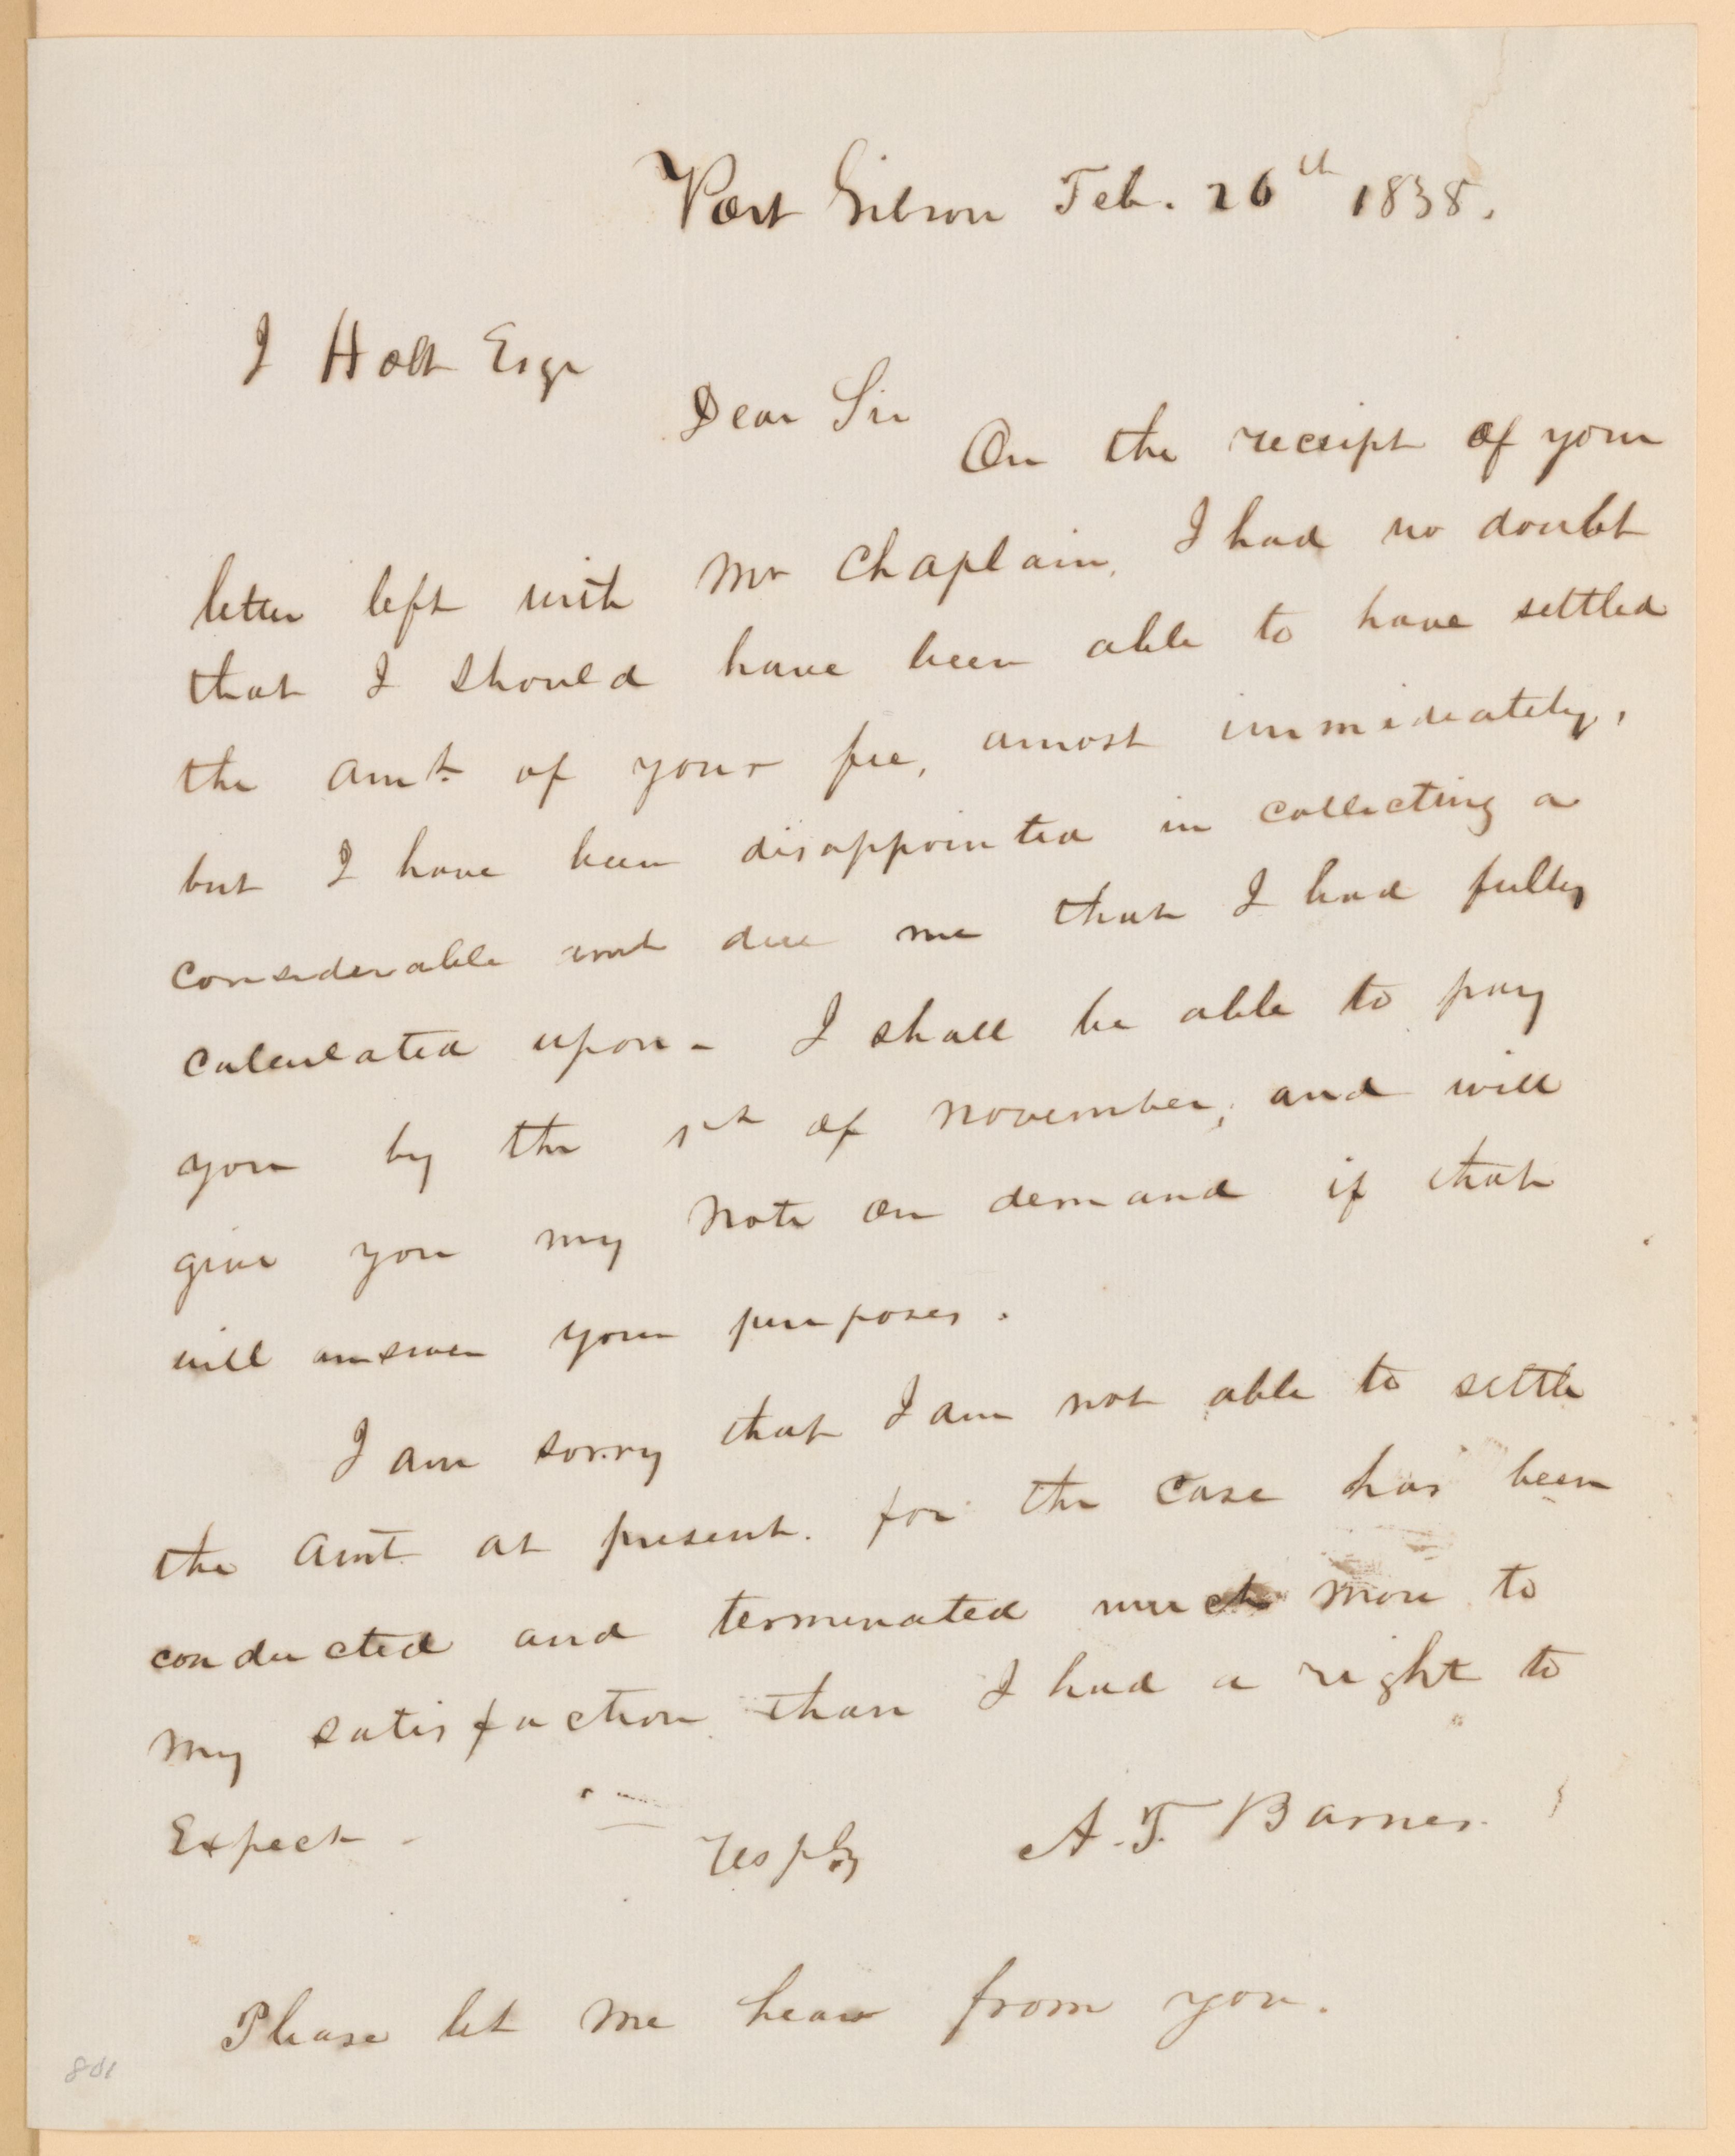 Port Gibson Feb. 26th 1838.
J Holt Esqr
Dear Sir
On the receipt of your
letter left with Mr Chaplain, I had no doubt
that I should have been able to have settled
the amt. of your fee, amost immideately,
but I have been disappointed in collecting a
considerable amt due me that I had fully
calculated upon - I shall be able to pay
you by the 1st of November, and will
give you my note on demand if that
will answer your purposes.
I am sorry that I am not able to settle
the amt at present. for the case has been
conducted and terminated much more to
my satisfaction than I had a right to
Expect -
Resply A. T. Barnes.
Please let me hear from you.
801